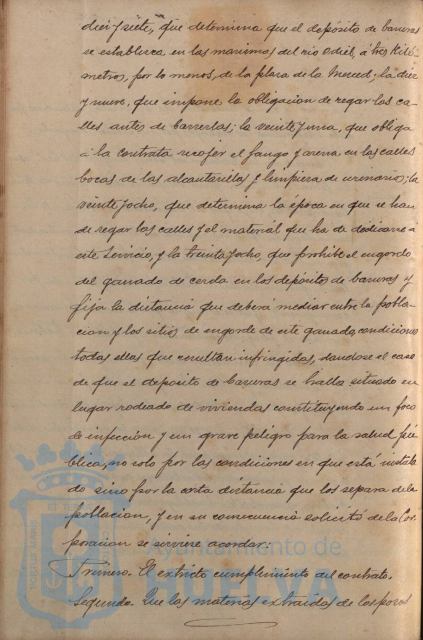 diez y siete, que determina que el depósito de basuras
se establezca en las marismas del río Odiel, á tres kiló-
metros, por lo menos, de la plaza de la Merced; la diez
y nueve, que impone la obligacion de regar las ca-
lles antes de barrerlas; la veinte y una, que obliga
á la contrata recojer el fango y arena en las calles
bocas de las alcantarillas y limpieza de urinarios; la
veinte y ocho, que determina la época en que se han
de regar las calles y el material que ha de dedicarse á
este servicio, y la treinta y ocho, que prohibe el engorde
del ganado de cerda en los depósitos de basuras y
fija la distancia que deberá mediar entre la pobla-
cion y los sitios de engorde de este ganado, condiciones
todas ellas que resultan infringidas, dandose el caso
de que el deposito de basuras se halla situado en
lugar rodeado de viviendas constituyendo un foco
de infección y un grave peligro para la salud pú-
blica, no solo por las condiciones en que está instala-
do sino por la corta distancia que los separa de la
poblacion, y en su consecuencia solicitó de la Cor-
poracion se sirviese acordar:
Primero. El extricto cumplimiento del contrato.
Segundo. Que las materias extraidas de los pozos
Ayuntamiento de
HUELVA